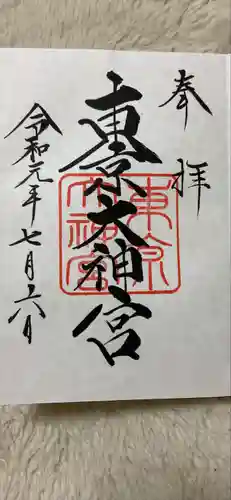 奉拝
東京大神宮
東京大神宮
令和元年七月六日